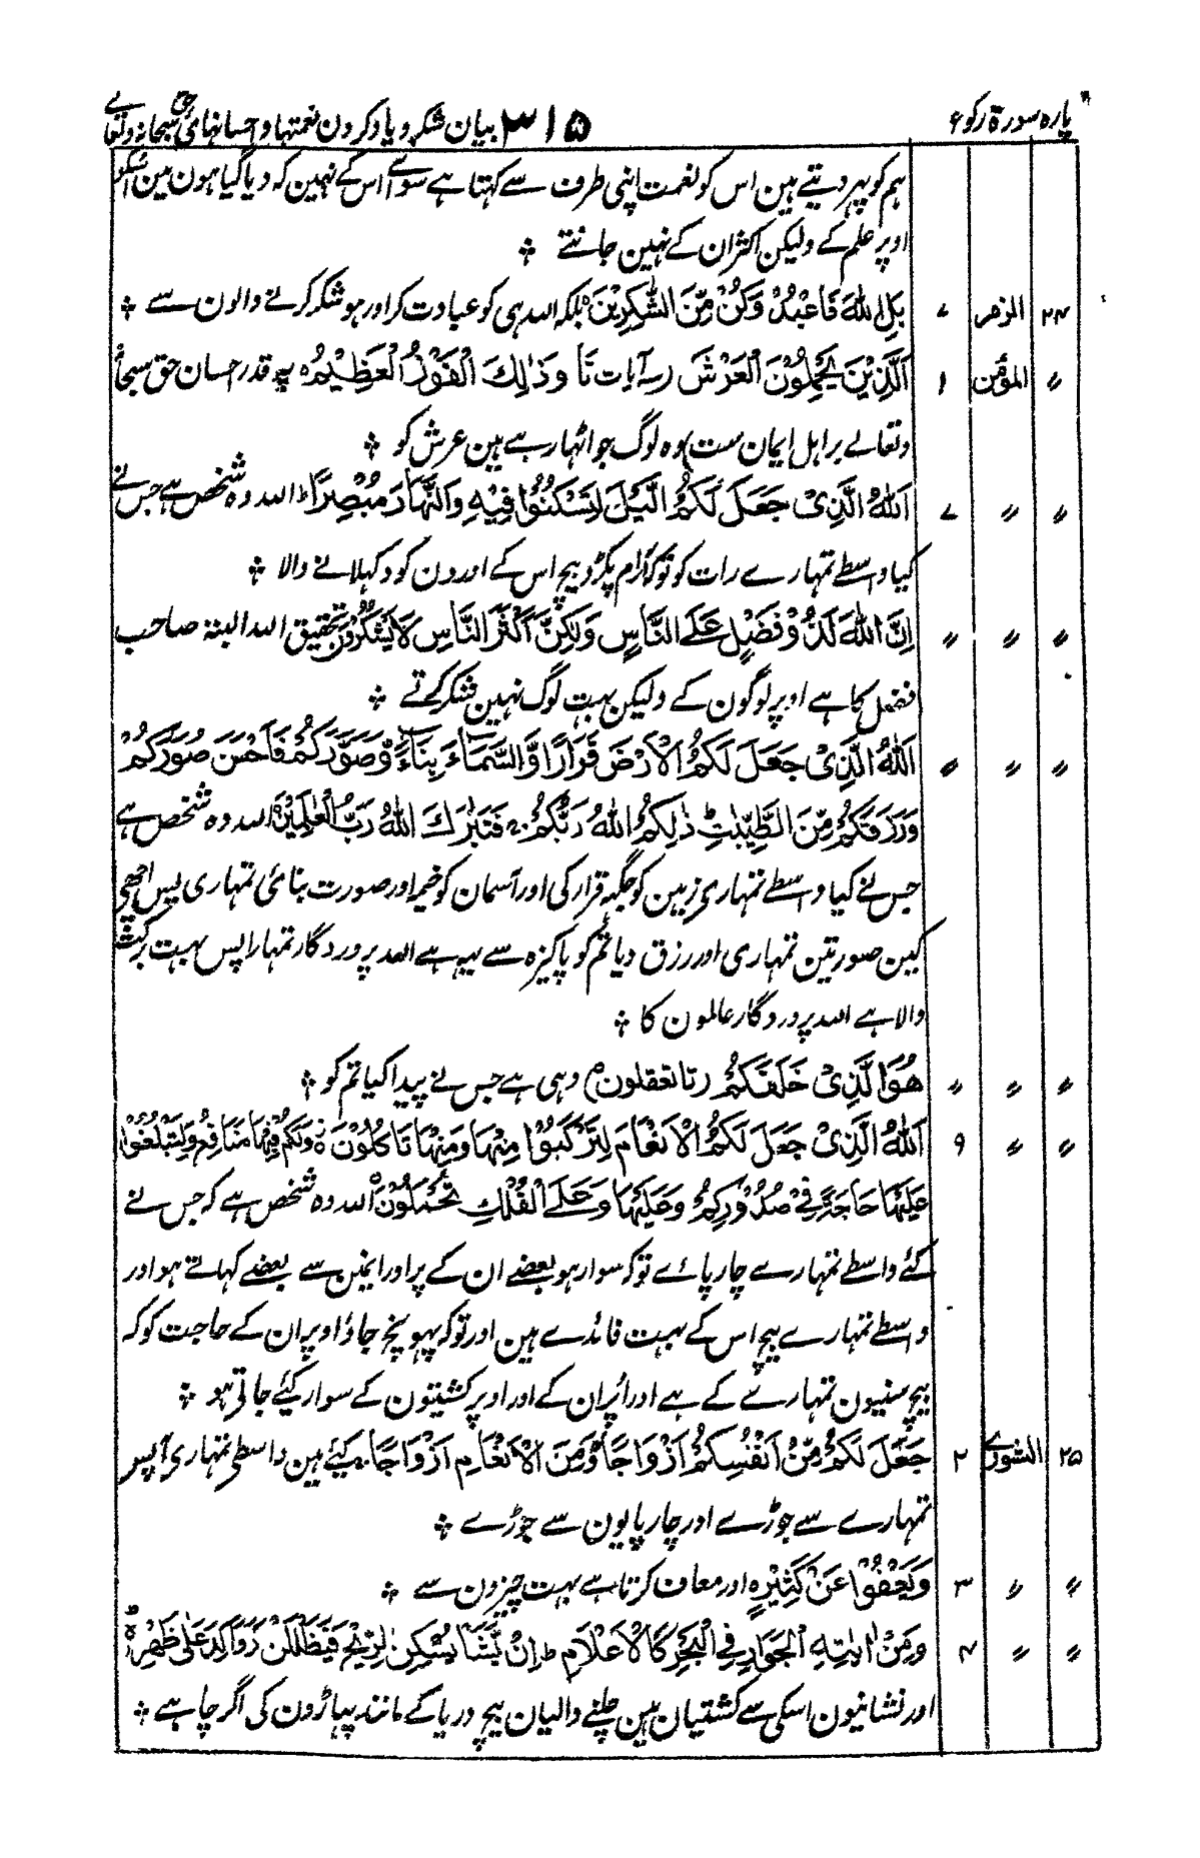 پارہ سورۃ رکوع ۳۱۵ بیان شکر و یاد کردن نعمتہا و احسانہائ حق سبحانہ و تعالے
ہم کو پہر دیتے ہین اس کو نعمت اپنی طرف سے کہتا ہے سوائے اس کے نہین کہ دیا گیا ہون مین اسکو
اوپر علم کے ولیکن اکثر ان کے نہین جانتے ÷
۲۴ الزمر ۷ بَلِ اللّٰهَ فَاعْبُدْ وَكُنْ مِّنَ الشّٰكِرِيْنَ بلکہ اللہ ہی کو عبادت کر اور ہو شکر کرنے والون سے ÷
〃 المؤمن ۱ اَلَّذِيْنَ يَحْمِلُوْنَ الْعَرْشَ رسہ آیات تا وَذٰلِكَ الْفَوْزُ الْعَظِيْمُ ہ چہ قدر احسان حق سبحانہ
وتعالے بر اہل ایمان ست) وہ لوگ جو اٹہا رہے ہین عرش کو ÷
〃 〃 ۷ اَللّٰهُ الَّذِيْ جَعَلَ لَكُمُ الَّيْلَ لِتَسْكُنُوْا فِيْهِ وَالنَّهَارَ مُبْصِرًا ط اللہ وہ شخص ہے جس نے
کیا واسطے تمہارے رات کو تو کہ آرام پکڑو بیچ اس کے اور دن کو دکہلانے والا ÷
〃 〃 〃 اِنَّ اللّٰهَ لَذُوْ فَضْلٍ عَلَى النَّاسِ وَلٰكِنَّ اَكْثَرَ النَّاسِ لَا يَشْكُرُوْنَ تحقیق اللہ البتہ صاحب
فضل کا ہے اوپر لوگون کے ولیکن بہت لوگ نہین شکر کرتے ÷
〃 〃 〃 اَللّٰهُ الَّذِيْ جَعَلَ لَكُمُ الْاَرْضَ قَرَارًا وَّالسَّمَآءَ بِنَآءً وَّصَوَّرَكُمْ فَاَحْسَنَ صُوَرَكُمْ
وَرَزَقَكُمْ مِّنَ الطَّيِّبٰتِ ط ذٰلِكُمُ اللّٰهُ رَبُّكُمْ فَتَبٰرَكَ اللّٰهُ رَبُّ الْعٰلَمِيْنَ ہ اللہ وہ شخص ہے
جس نے کیا واسطے تمہاری زمین کو جگہہ قرار کی اور آسمان کو خیمہ اور صورت بنائی تمہاری پس اچھی
کین صورتین تمہاری اور رزق دیا تم کو پاکیزہ سے یہہ ہے اللہ پروردگار تمہارا پس بہت برکت
والا ہے اللہ پروردگار عالمون کا ÷
〃 〃 〃 هُوَ الَّذِيْ خَلَقَكُمْ (تا تعقلون) وہی ہے جس نے پیدا کیا تم کو ÷
〃 〃 ۹ اَللّٰهُ الَّذِيْ جَعَلَ لَكُمُ الْاَنْعَامَ لِتَرْكَبُوْا مِنْهَا وَمِنْهَا تَاْكُلُوْنَ ہ وَلَكُمْ فِيْهَا مَنَافِعُ وَلِتَبْلُغُوْا
عَلَيْهَا حَاجَةً فِيْ صُدُوْرِكُمْ وَعَلَيْهَا وَعَلَى الْفُلْكِ تُحْمَلُوْنَ ہ اللہ وہ شخص ہے کہ جس نے
کئے واسطے تمہارے چارپائے تو کہ سوار ہو بعضے ان کے پر اور انہین سے بعضے کہاتے ہو اور
واسطے تمہارے بیچ اس کے بہت فائدے ہین اور تو کہ پہونچ جاؤ اوپر ان کے حاجت کو کہ
بیچ سنیون تمہارے کے ہے اور اُپر ان کے اور اوپر کشتیون کے سوار کیئے جاتی ہو ÷
۲۵ الشورے ۲ جَعَلَ لَكُمْ مِّنْ اَنْفُسِكُمْ اَزْوَاجًا وَّمِنَ الْاَنْعَامِ اَزْوَاجًا کیئے ہین واسطے تمہاری آپس
تمہارے سے جوڑے اور چارپایون سے جوڑے ÷
〃 〃 ۳ وَيَعْفُوْا عَنْ كَثِيْرٍ ہ اور معاف کرتا ہے بہت چیزون سے ÷
〃 〃 ۴ وَمِنْ اٰيٰتِهِ الْجَوَارِ فِي الْبَحْرِ كَالْاَعْلَامِ ط اِنْ يَّشَاْ يُسْكِنِ الرِّيْحَ فَيَظْلَلْنَ رَوَاكِدَ عَلٰى ظَهْرِهٖ ط
اور نشانیون اسکی سے کشتیان ہین چلنے والیان بیچ دریا کے مانند پہاڑون کی اگر چاہے ÷